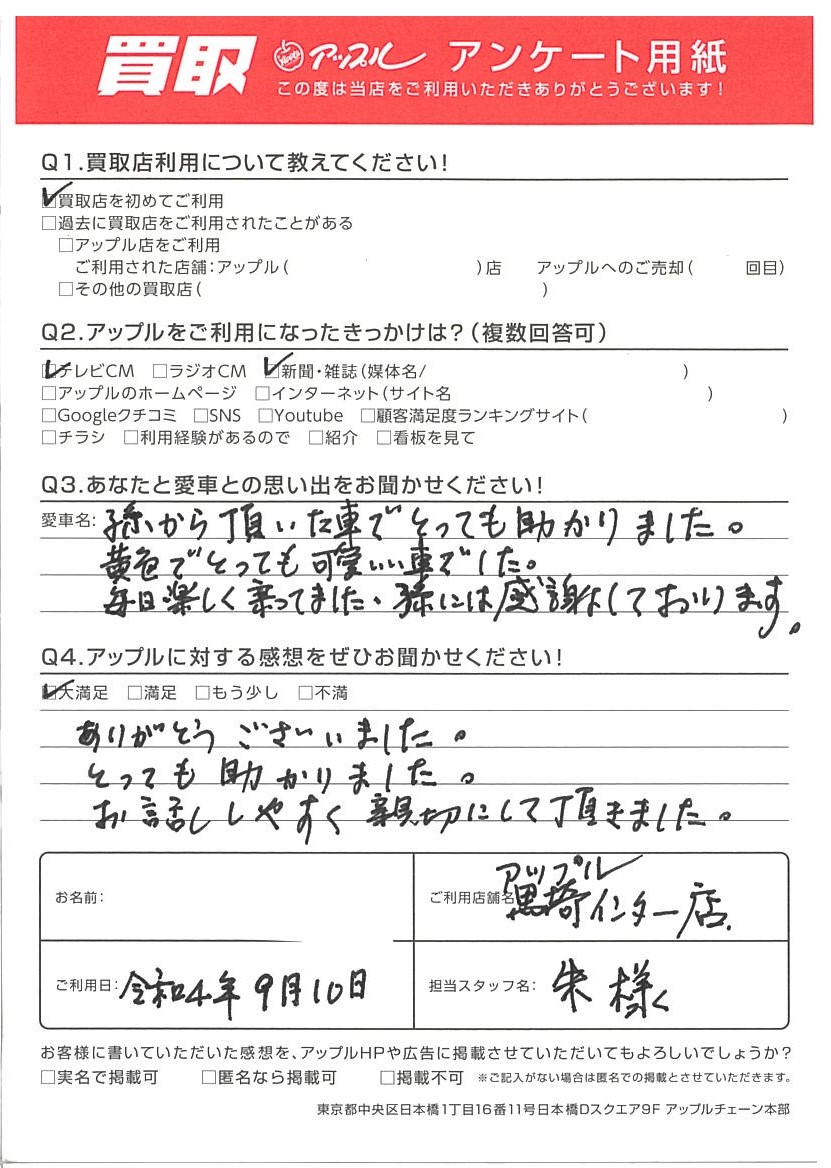 買取 アップル アンケート用紙
この度は当店をご利用いただきありがとうございます!
Q1.買取店利用について教えてください!
☑買取店を初めてご利用
□過去に買取店をご利用されたことがある
□アップル店をご利用
ご利用された店舗:アップル( )店 アップルへのご売却( 回目)
□その他の買取店( )
Q2.アップルをご利用になったきっかけは?(複数回答可)
☑テレビCM □ラジオCM ☑新聞・雑誌(媒体名/ )
□アップルのホームページ □インターネット(サイト名 )
□Googleクチコミ □SNS □Youtube □顧客満足度ランキングサイト( )
□チラシ □利用経験があるので □紹介 □看板を見て
Q3.あなたと愛車との思い出をお聞かせください!
愛車名: 孫から頂いた車でとっても助かりました。
黄色でとっても可愛いい車でした。
毎日楽しく乗ってました、孫には感謝しております。
Q4.アップルに対する感想をぜひお聞かせください!
☑大満足 □満足 □もう少し □不満
ありがとうございました。
とっても助かりました。
お話ししやすく親切にして頂きました。
お名前: ご利用店舗名 アップル
黒埼インター店.
ご利用日: 令和4年9月10日 担当スタッフ名: 朱様
お客様に書いていただいた感想を、アップルHPや広告に掲載させていただいてもよろしいでしょうか?
□実名で掲載可 □匿名なら掲載可 □掲載不可 ※ご記入がない場合は匿名での掲載とさせていただきます。
東京都中央区日本橋1丁目16番11号日本橋Dスクエア9F アップルチェーン本部